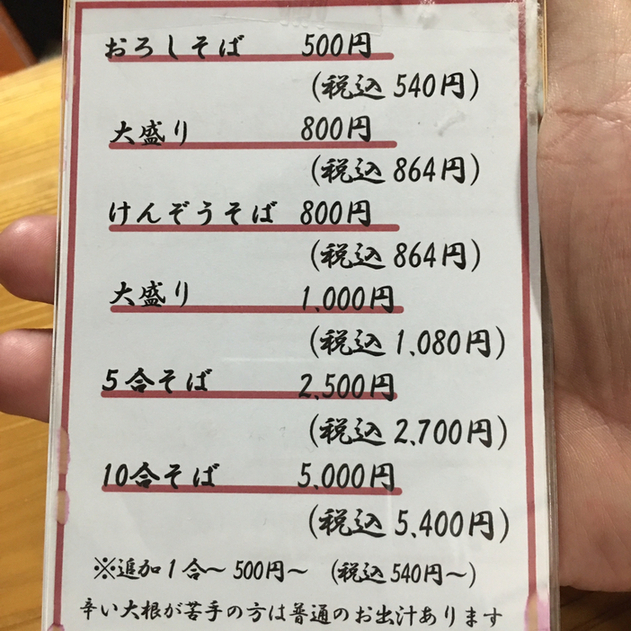 おろしそば 500円
(税込 540円)
大盛り 800円
(税込 864円)
けんぞうそば 800円
(税込 864円)
大盛り 1,000円
(税込 1,080円)
5合そば 2,500円
(税込 2,700円)
10合そば 5,000円
(税込 5,400円)
※追加1合～500円～ (税込540円～)
辛い大根が苦手の方は普通のお出汁あります